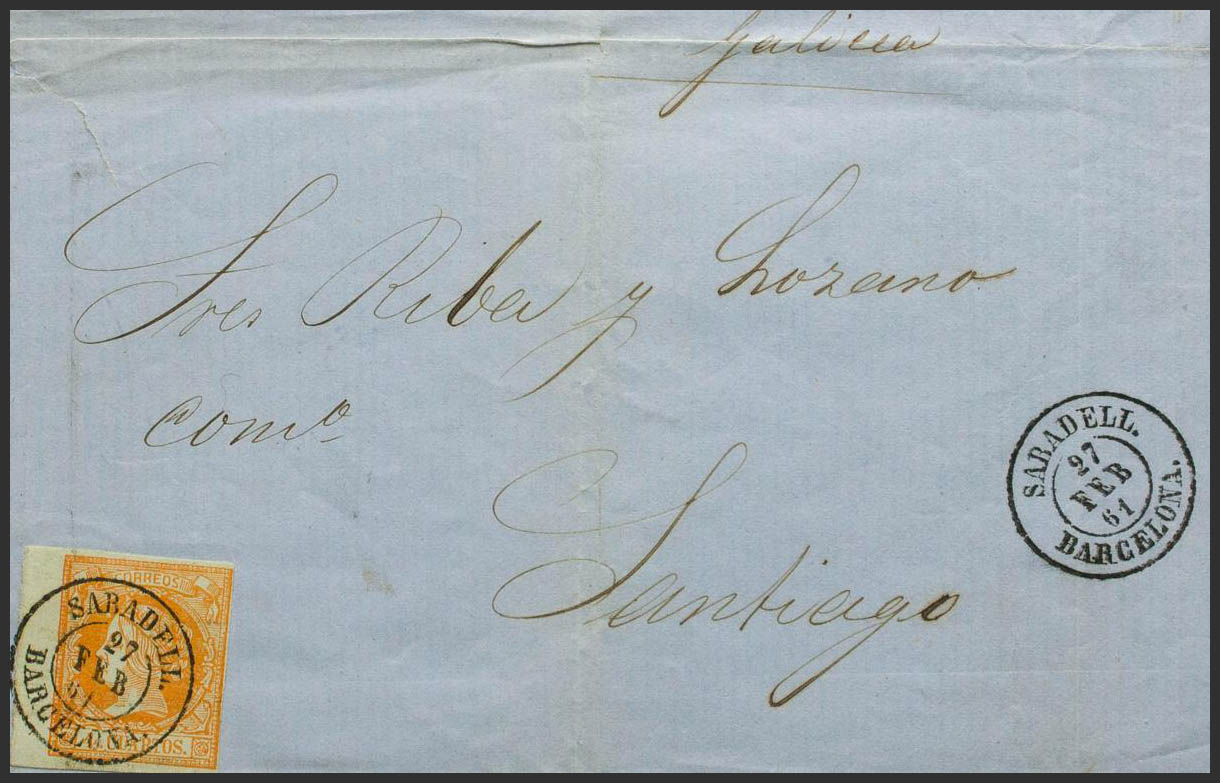 Galicia
Sres Riba y Lozano
comº
Santiago
SABADELL.
27
FEB
61
BARCELONA.
CORREOS
SABADELL.
27
FEB
61
BARCELONA.
CUARTOS.